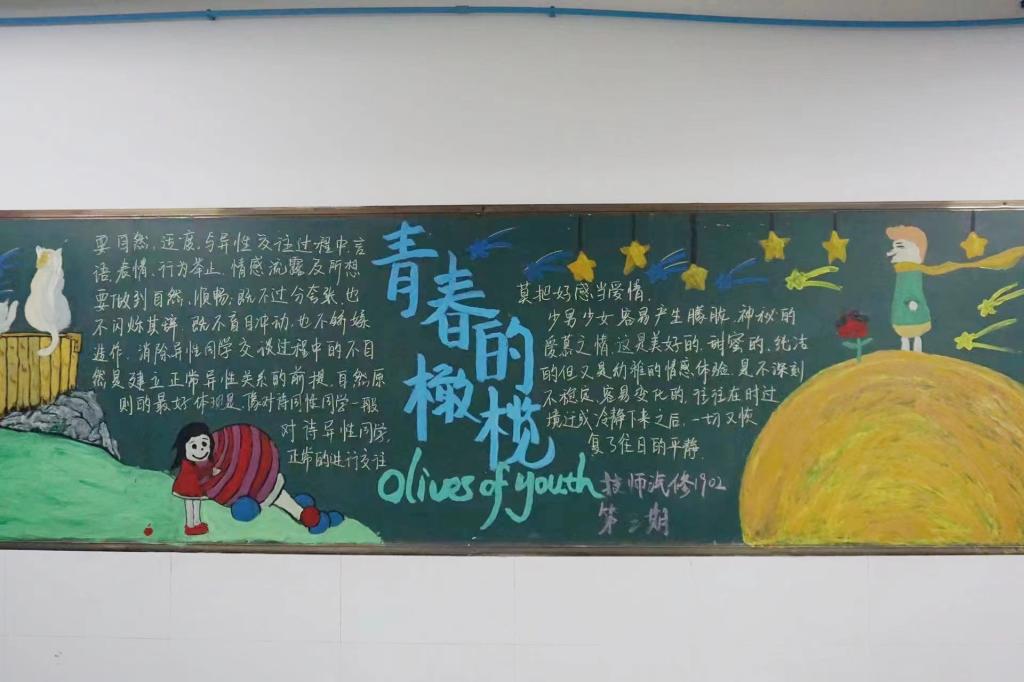 要自然，适度，与异性交往过程中言
语、表情、行为举止、情感流露及所想
要做到自然、顺畅，既不过分夸张，也
不闪烁其辞，既不盲目冲动，也不矫揉
造作，消除异性同学交谈过程中的不自
然是建立正常异性关系的前提，自然原
则的最好体现是，像对待同性同学一般
对待异性同学，
正常的进行交往
青春的
橄榄
Olives of youth
莫把好感当爱情，
少男少女容易产生朦胧、神秘的
爱慕之情，这是美好的，甜蜜的，纯洁
的但又是幼稚的情感体验，是不深刻
不稳定，容易变化的，往往在时过
境迁或冷静下来之后，一切又恢
复了往日的平静
技师汽修1902
第二期